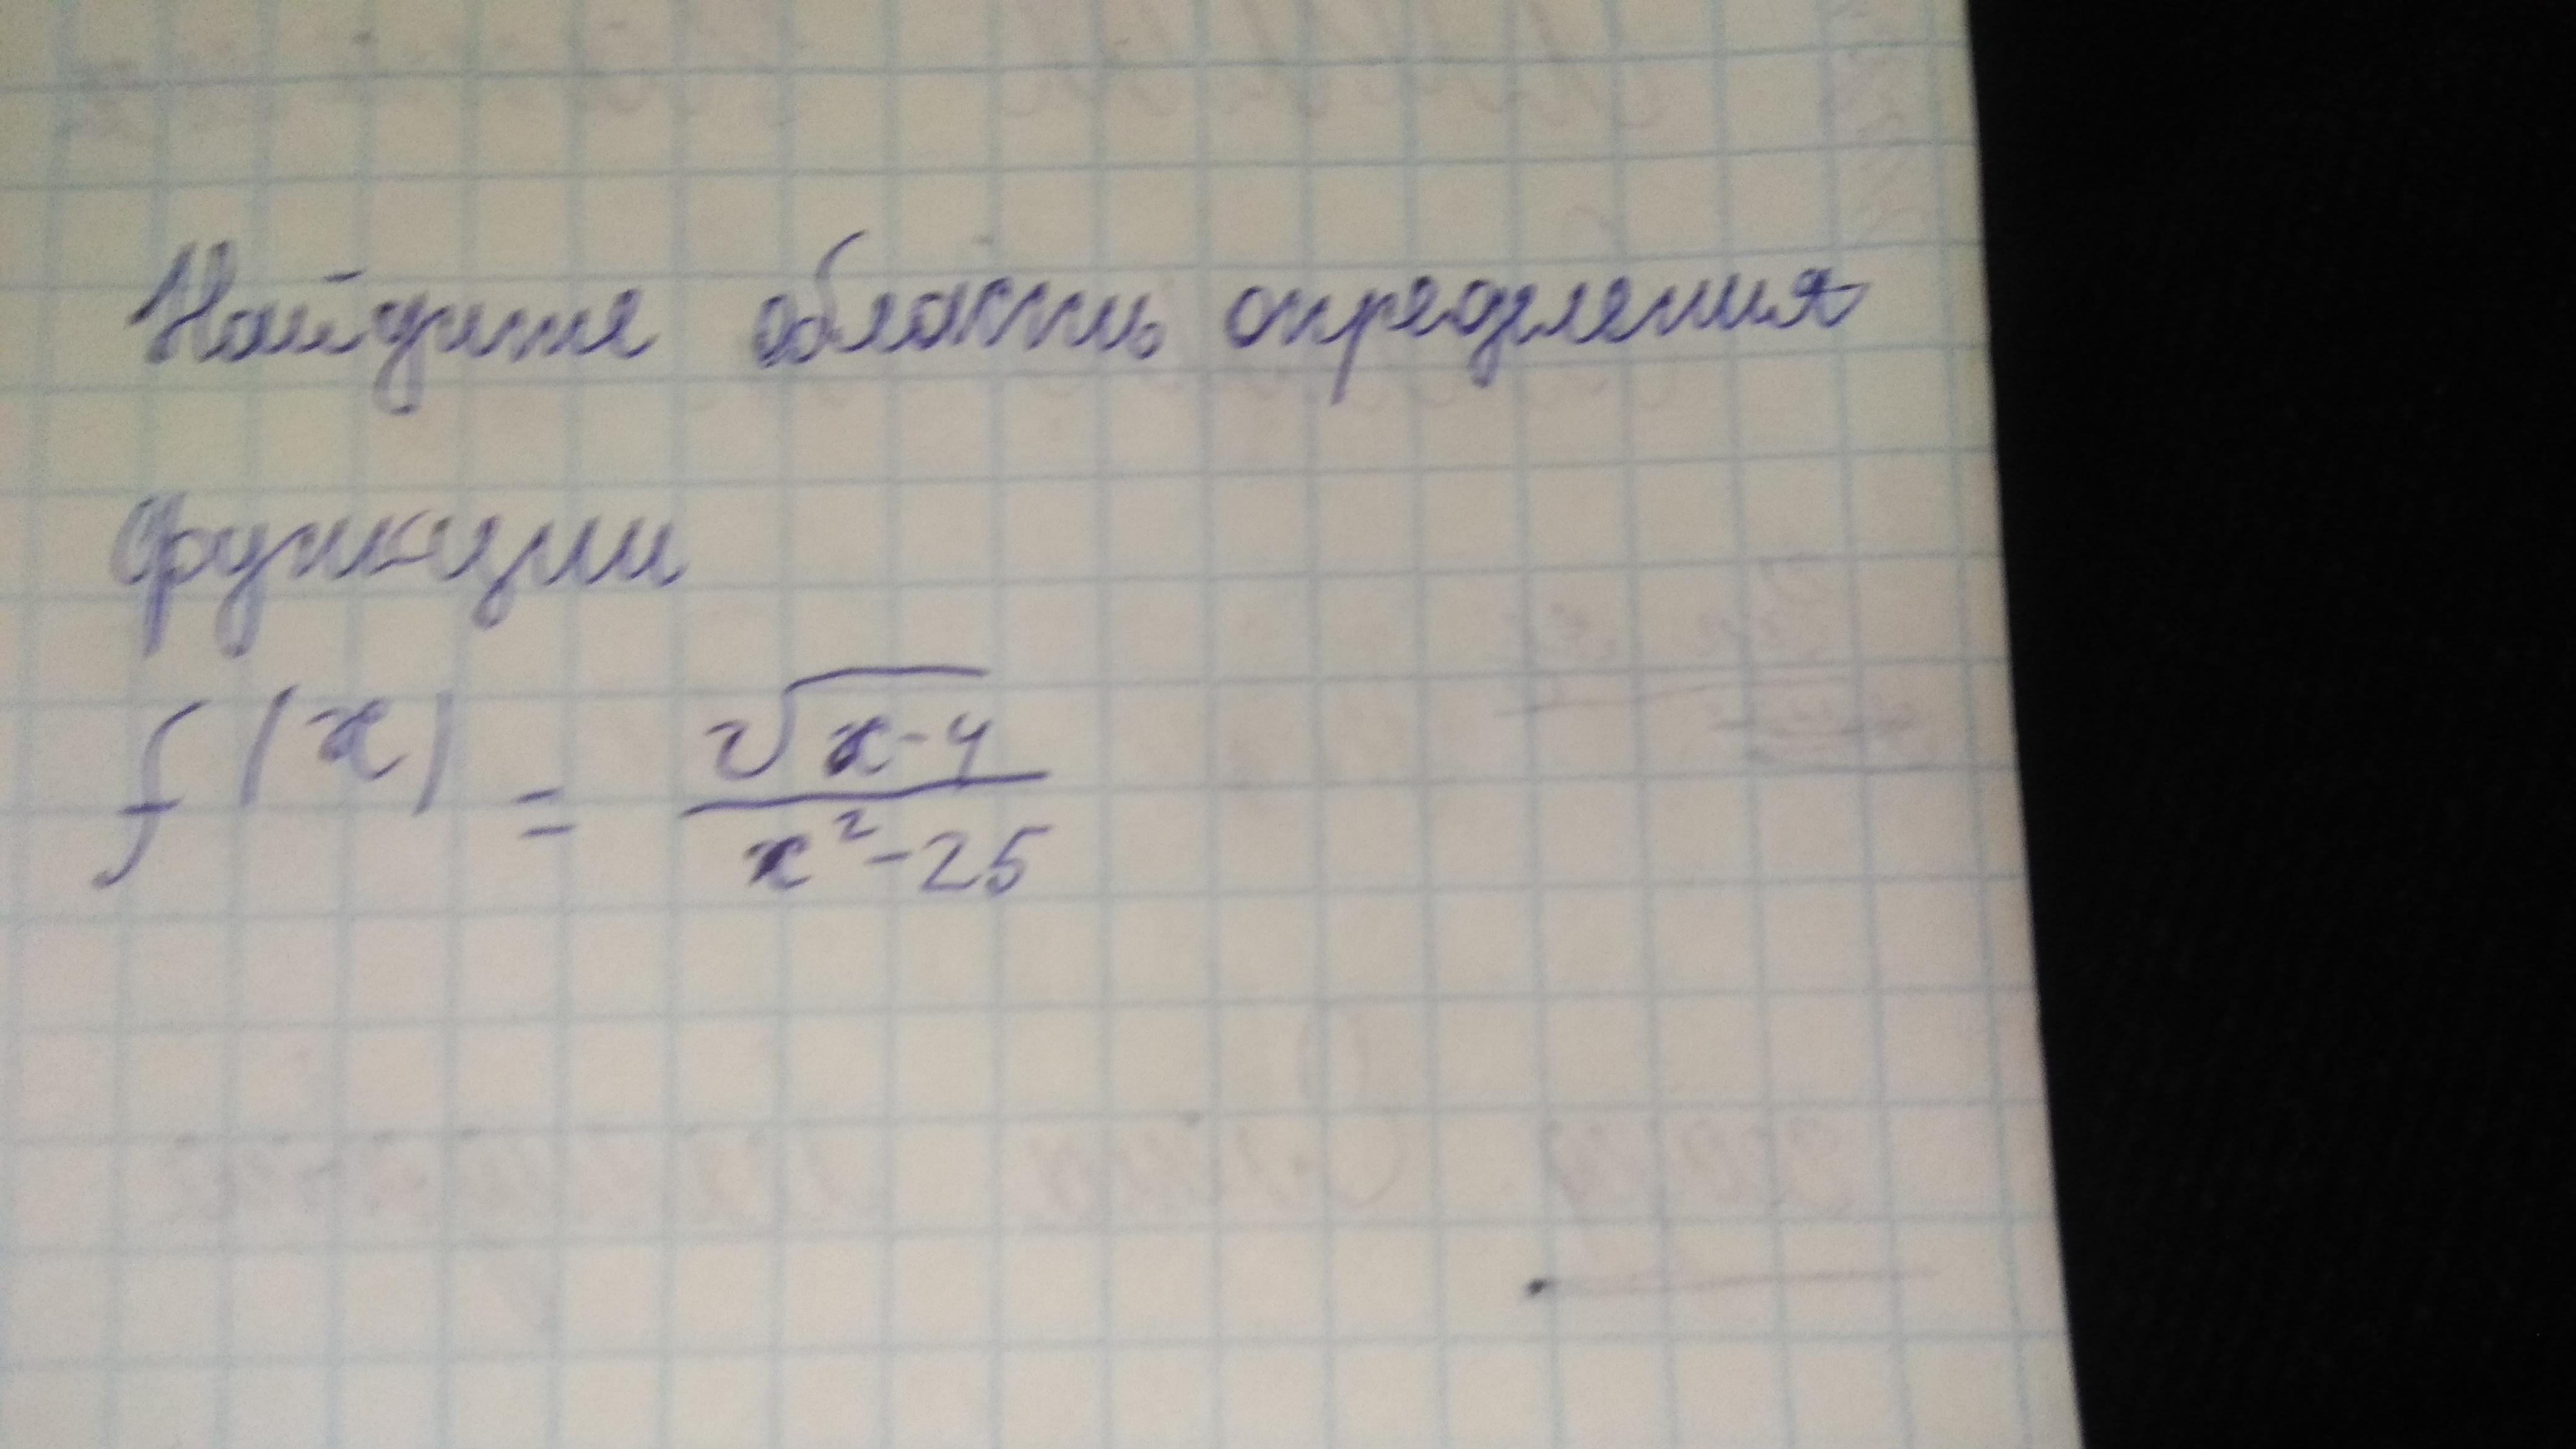 Найдите область определения
функции
f(x) = √(x-4) / (x²-25)